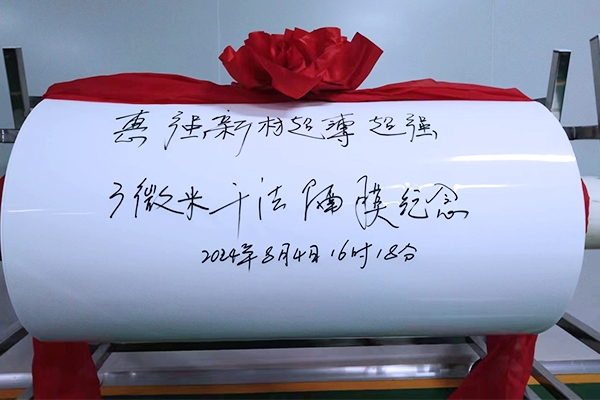 惠强新材超薄超强
3微米干法隔膜纪念
2024年8月4日16时18分